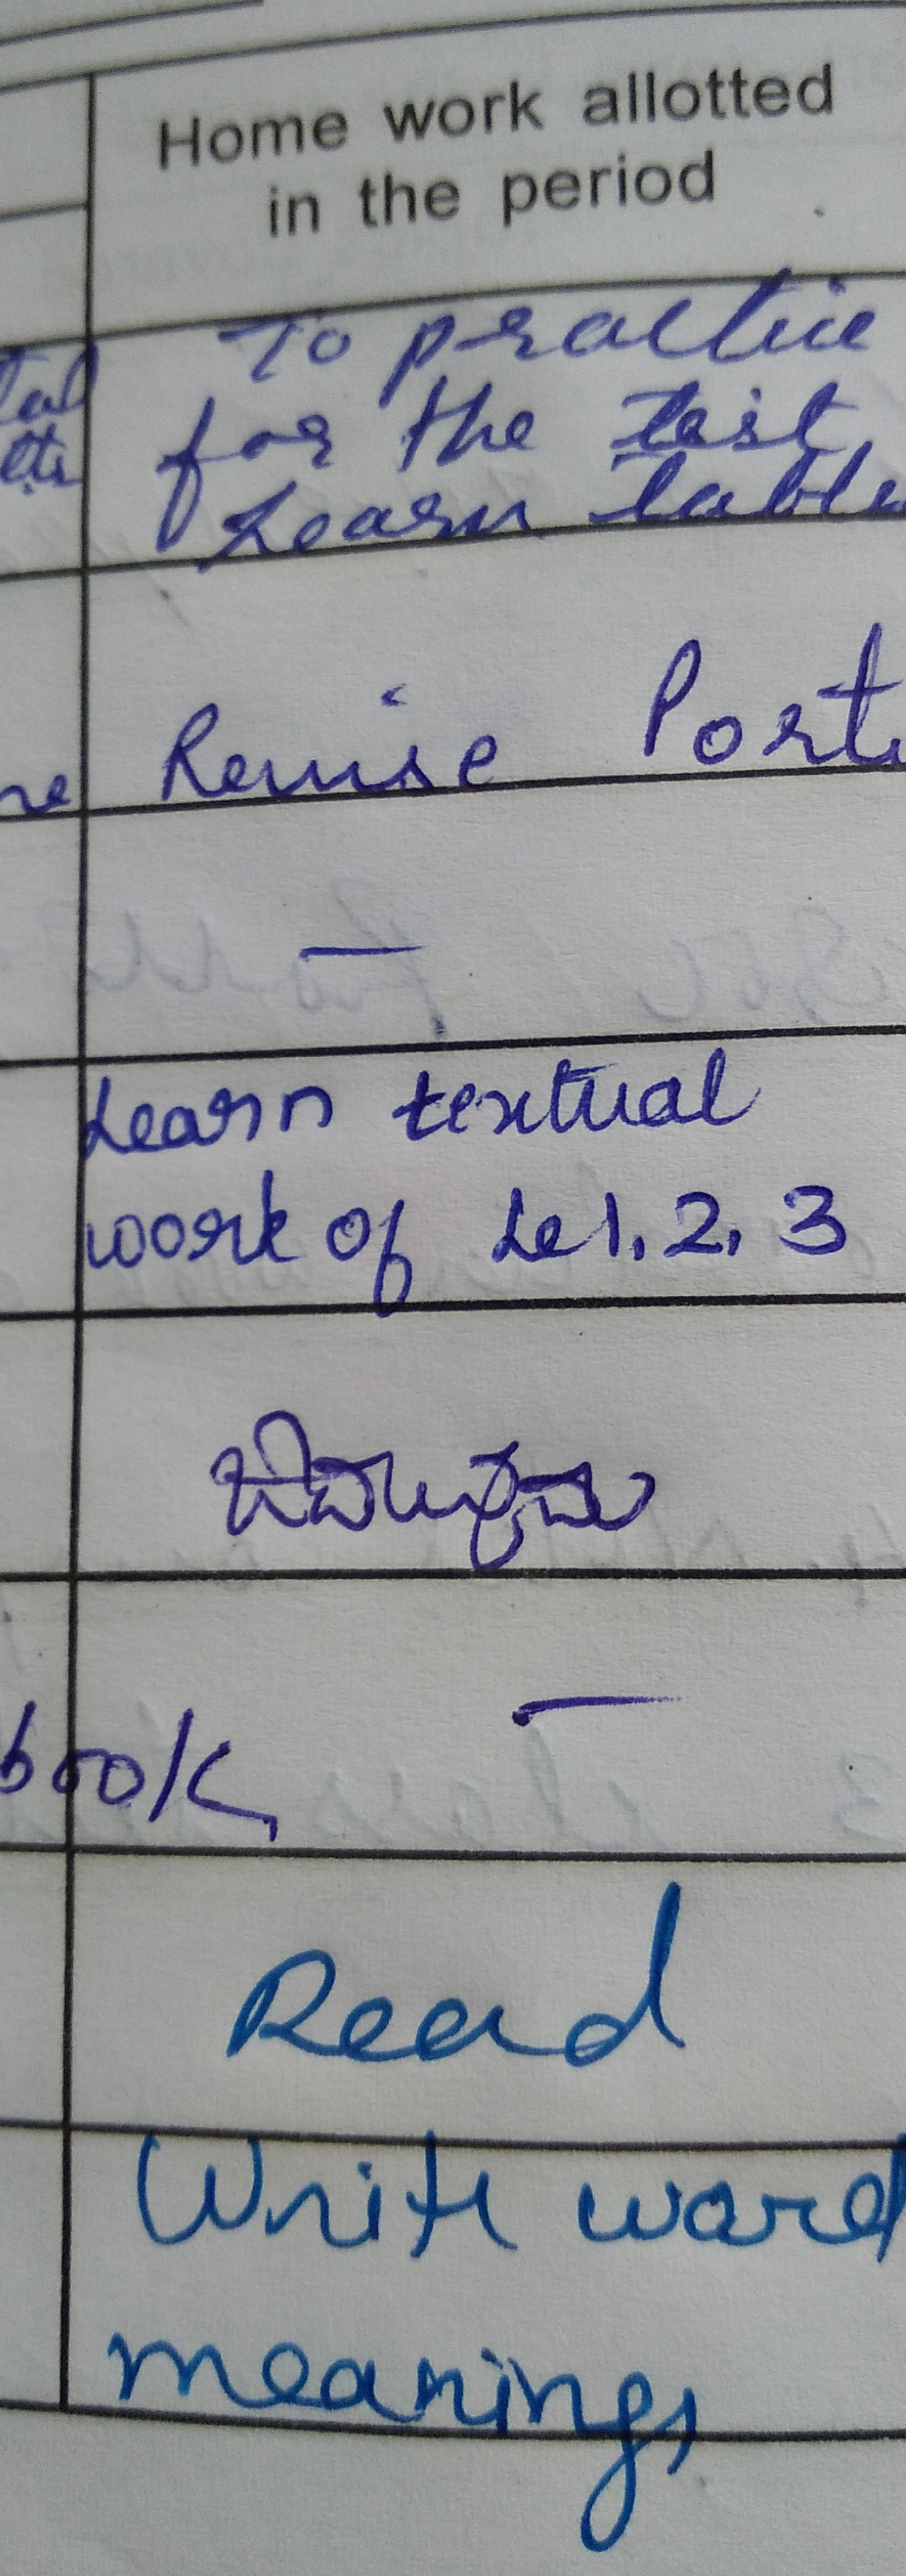 Home work allotted
in the period
To practice
for the test
Learn table
Revise Port
—
Learn textual
work of Le 1, 2, 3
book
—
Read
Write word
meanings